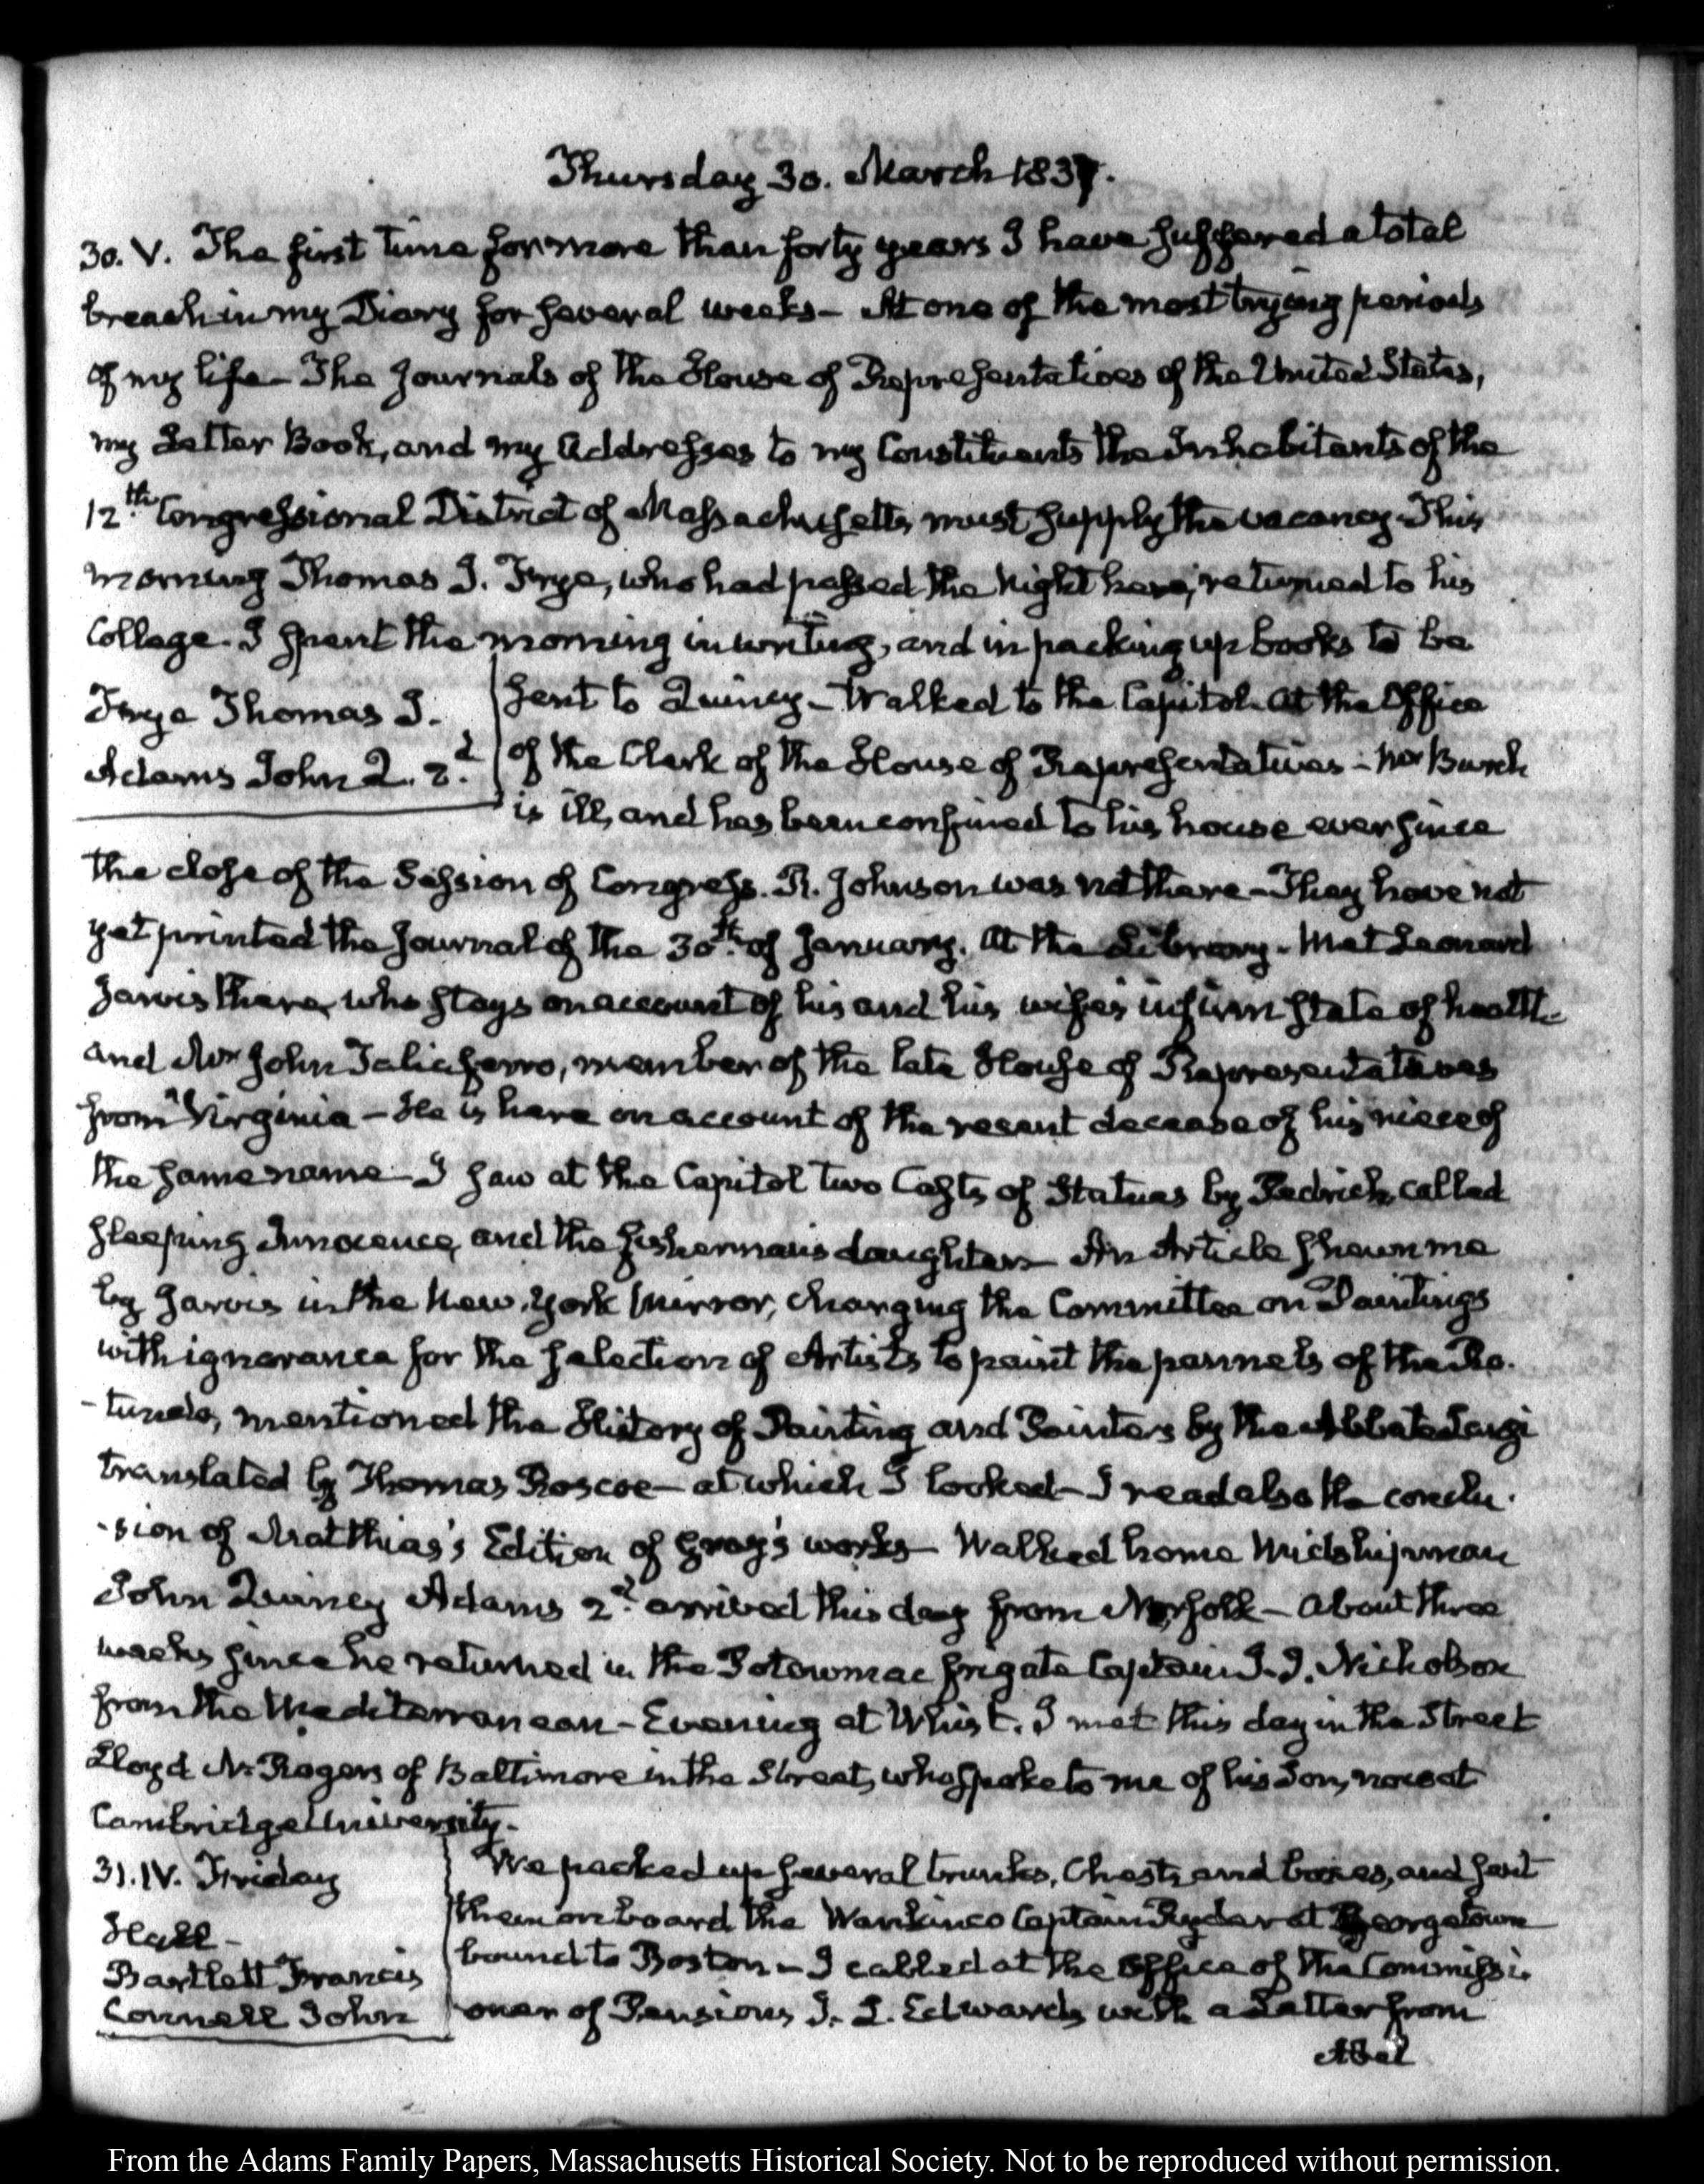 Thursday 30. March 1837.
30. V. The first time for more than forty years I have suffered a total
breach in my Diary for several weeks - At one of the most trying periods
of my life - The Journals of the House of Representatives of the United States,
my Letter Book, and my Addresses to my Constituents the Inhabitants of the
12th. Congressional District of Massachusetts, must supply the vacancy - This
morning Thomas J. Frye, who had passed the Night here, returned to his
College. I spent the morning in writing, and in packing up books to be
Frye Thomas J.
Adams John Q. 2d.
sent to Quincy - Walked to the Capitol. At the Office
of the Clerk of the House of Representatives - Mr Burch
is ill, and has been confined to his house ever since
the close of the Session of Congress. R. Johnson was not there - They have not
yet printed the Journal of the 30th. of January. At the Library - Met Leonard
Jarvis there, who stays on account of his and his wife's infirm state of health -
and Mr John Taliaferro, member of the late House of Representatives
from Virginia - He is here on account of the recent decease of his niece of
the same name - I saw at the Capitol two Casts of Statues by, called
sleeping Innocence, and the fisherman's daughter - An Article shewn me
by Jarvis in the New-York Mirror, charging the Committee on Paintings
with ignorance for the selection of Artists to paint the pannels of the Ro-
-tundo, mentioned the History of Painting and Painters by the Abbate Lanzi
translated by Thomas Roscoe - at which I looked - I read also the conclu-
-sion of Matthias's Edition of Gray's works - Walked home Midshipman
John Quincy Adams 2d. arrived this day from Norfolk - about three
weeks since he returned in the Potowmac frigate Captain J. J. Nicholson
from the Mediterranean - Evening at Whist. I met this day in the Street
Lloyd N. Rogers of Baltimore in the Street, who spoke to me of his Son, now at
Cambridge University -
31. IV. Friday
Hall -
Bartlett Francis
Connell John
We packed up several trunks, Chests and boxes, and sent
them on board the Captain Ryder at Georgetown
bound to Boston - I called at the Office of the Commissi-
oner of Pensions J. L. Edwards with a Letter from
Abel
From the Adams Family Papers, Massachusetts Historical Society. Not to be reproduced without permission.